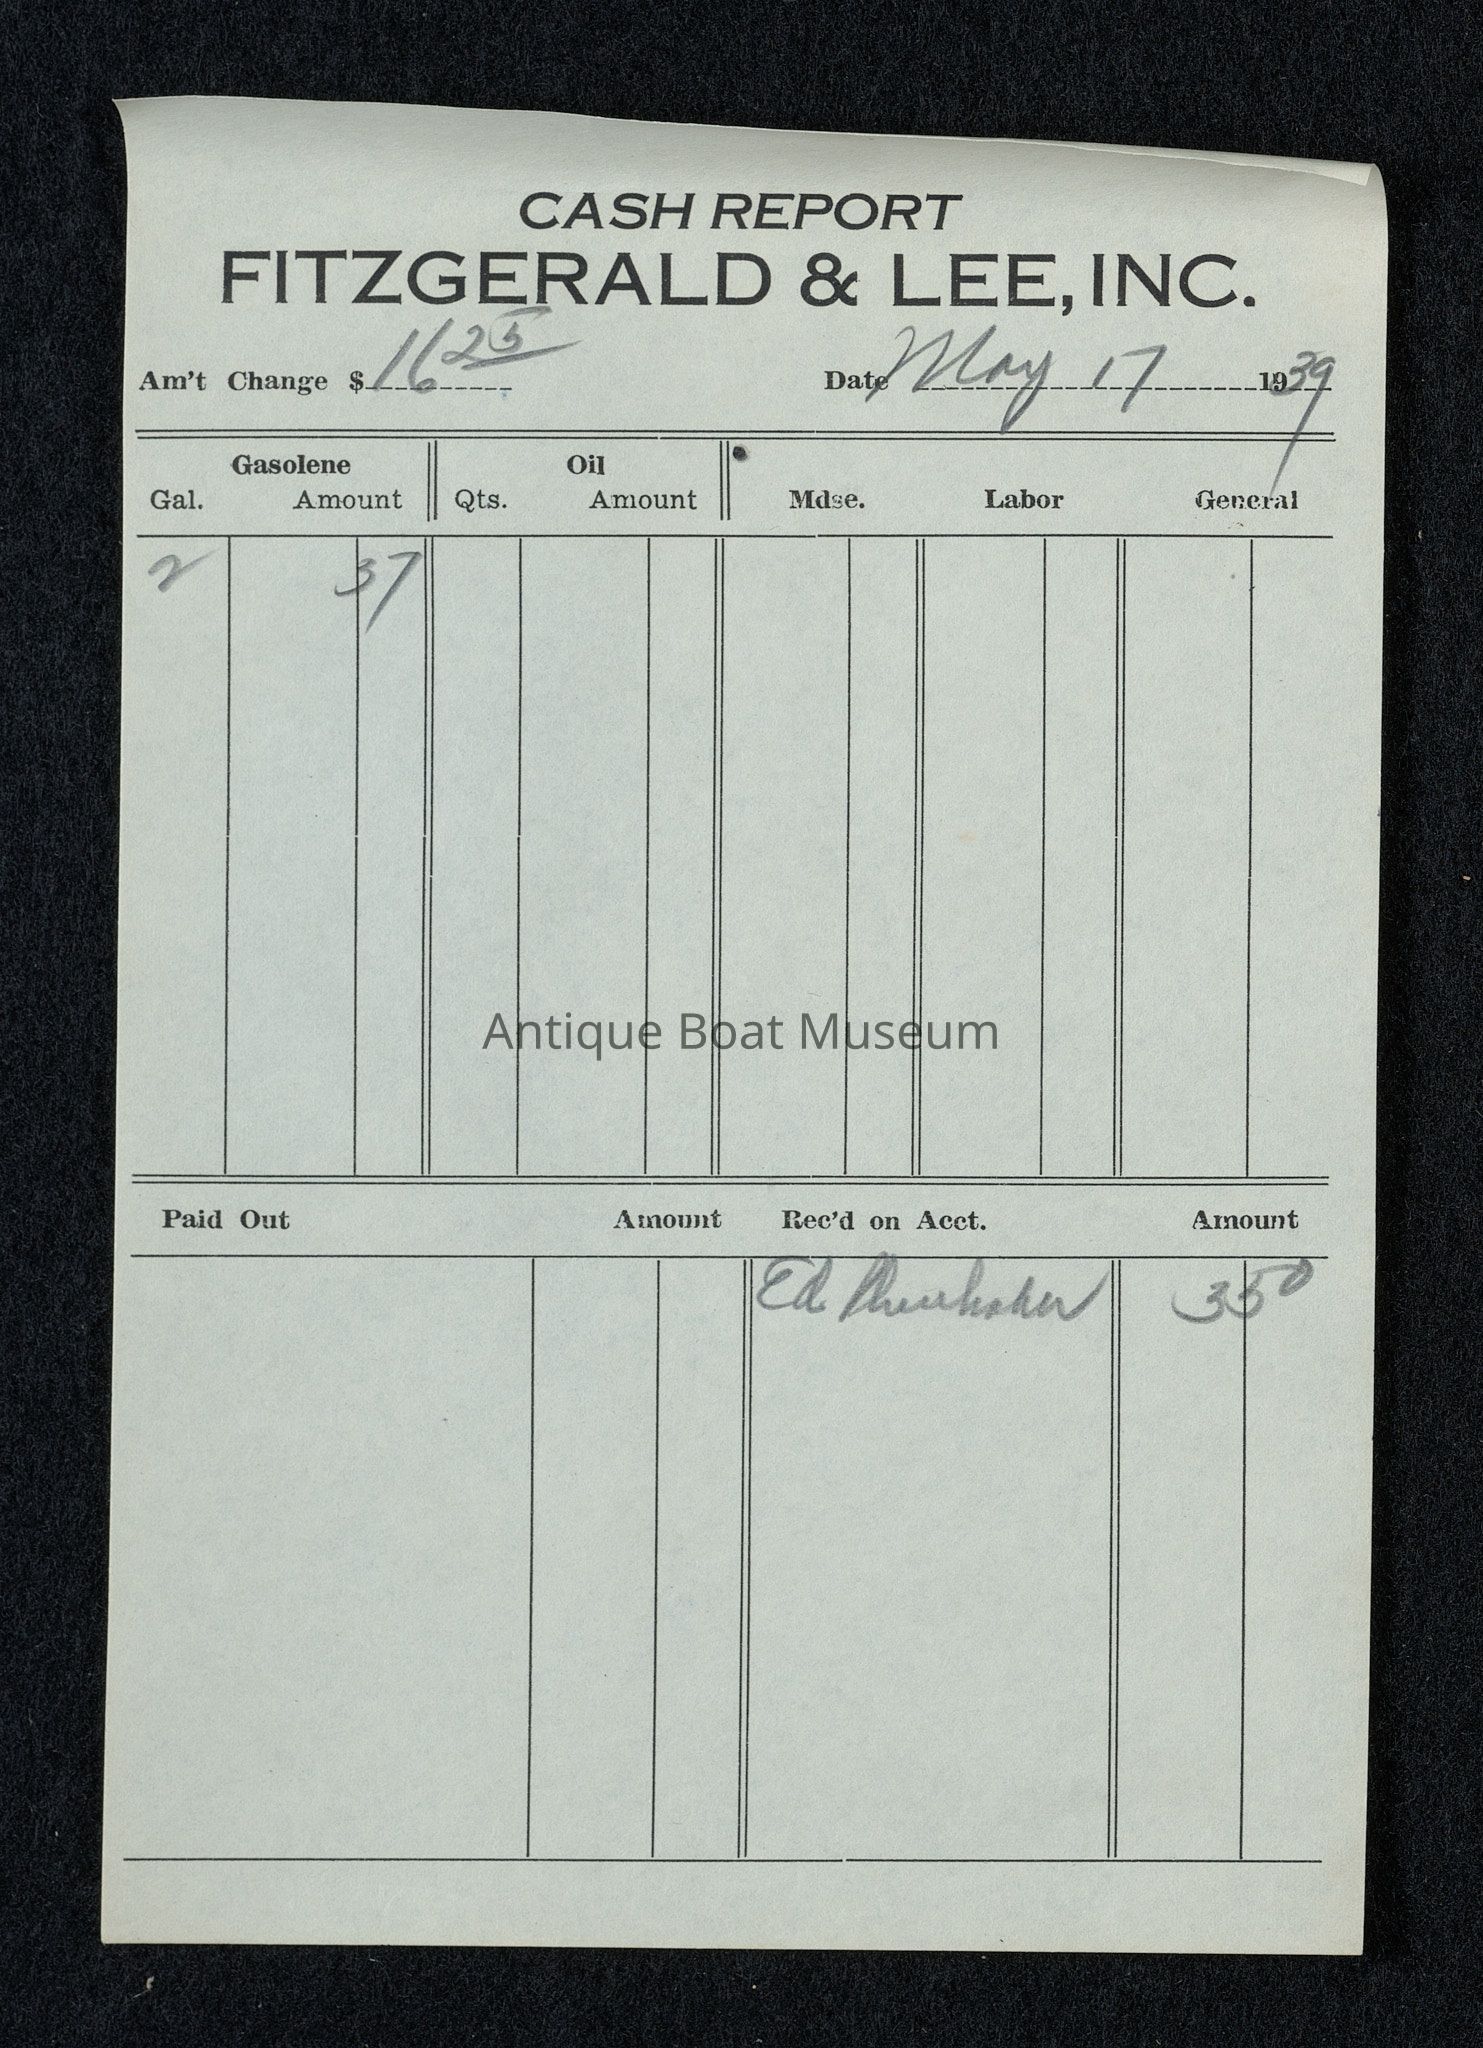 CASH REPORT
FITZGERALD & LEE, INC.
Am't Change $ 16 25 Date May 17 1939
Gasolene Oil
Gal. Amount Qts. Amount Mdse. Labor General
2 37
Antique Boat Museum
Paid Out Amount Rec'd on Acct. Amount
Ed 3 50